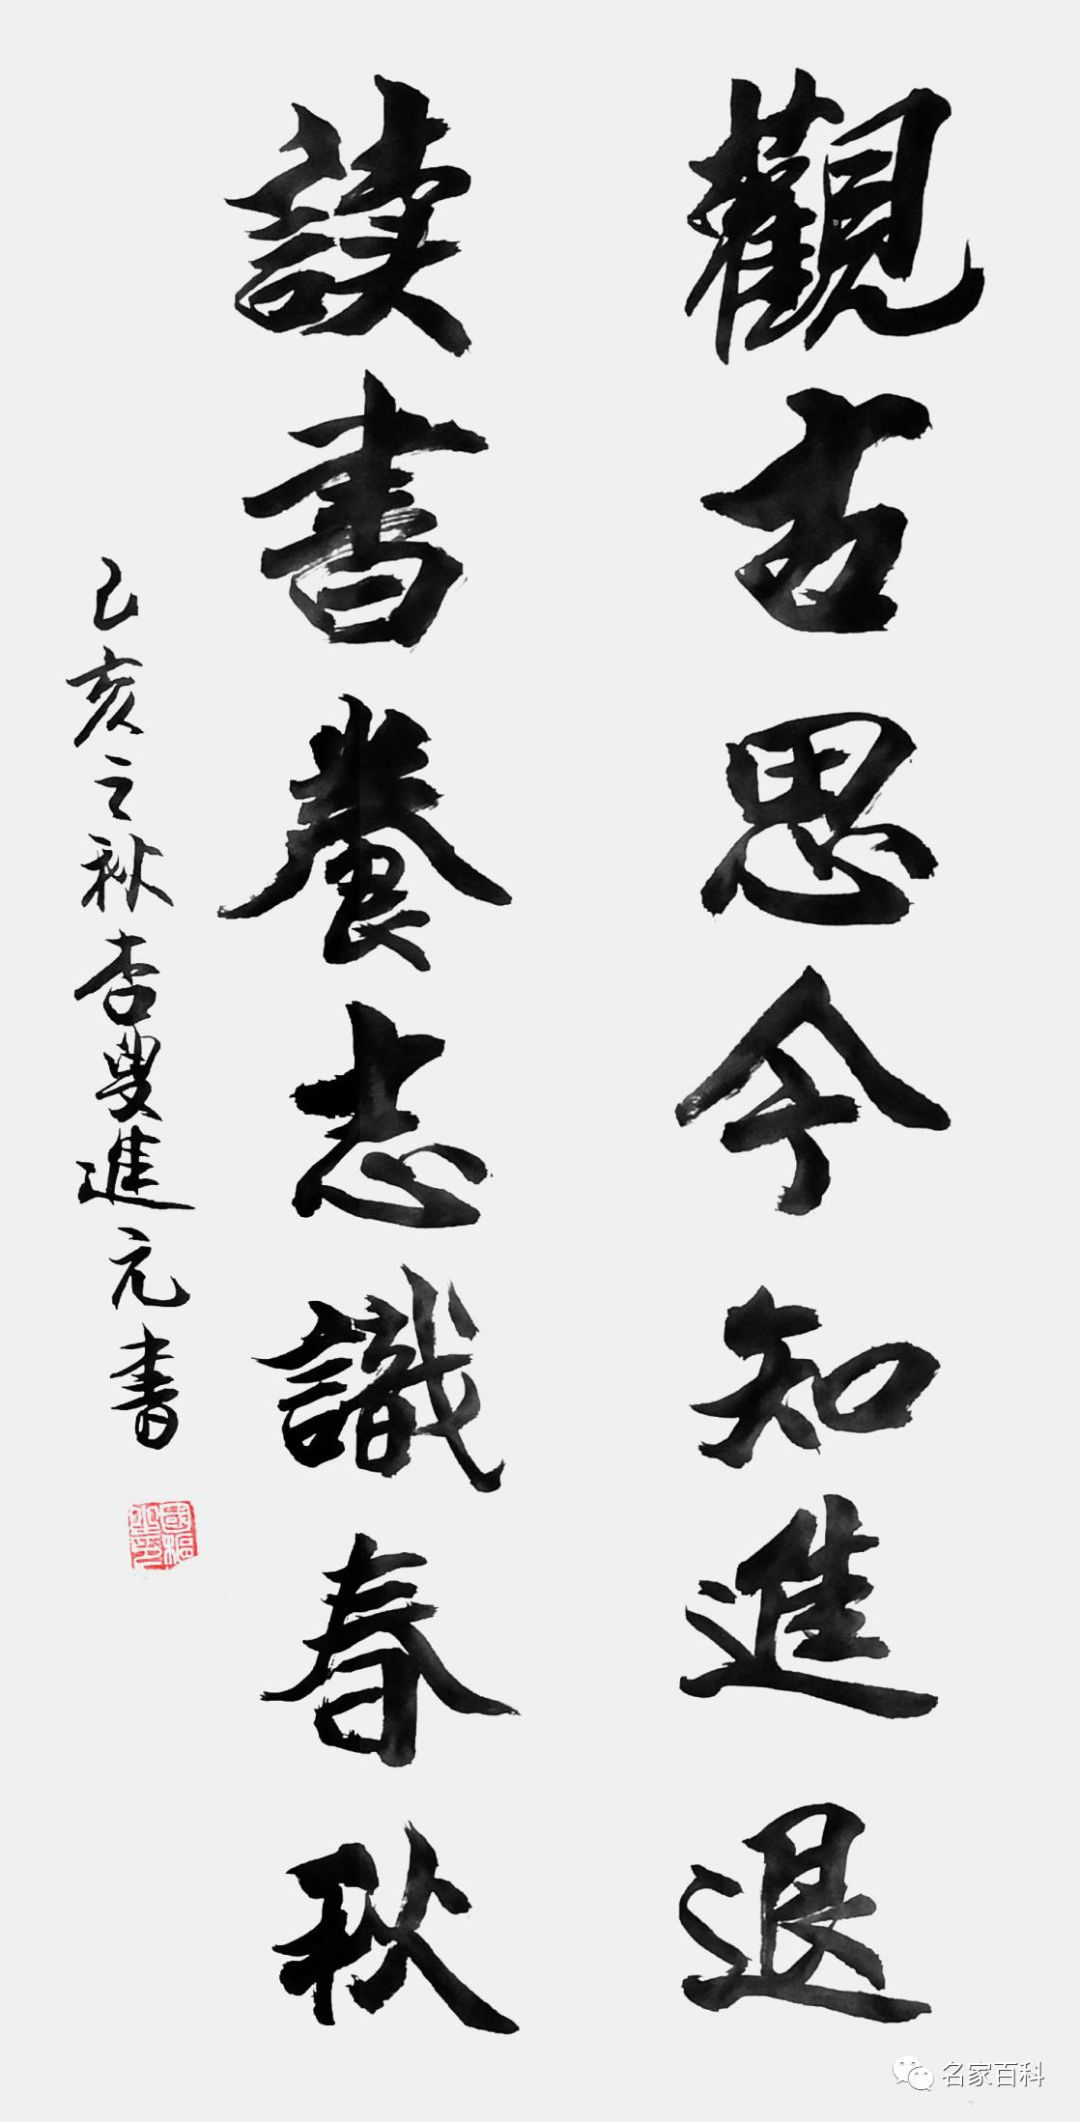 觀古思今知進退
讀書養志識春秋
己亥之秋杏叟進元書
名家百科